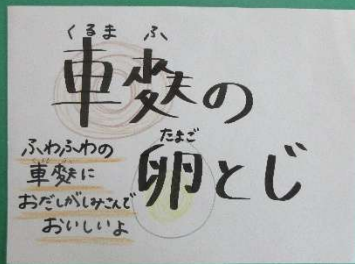 くるま ふ
車麩の
たまご
卵とじ
ふわふわの
車麩に
おだしがしみこんで
おいしいよ